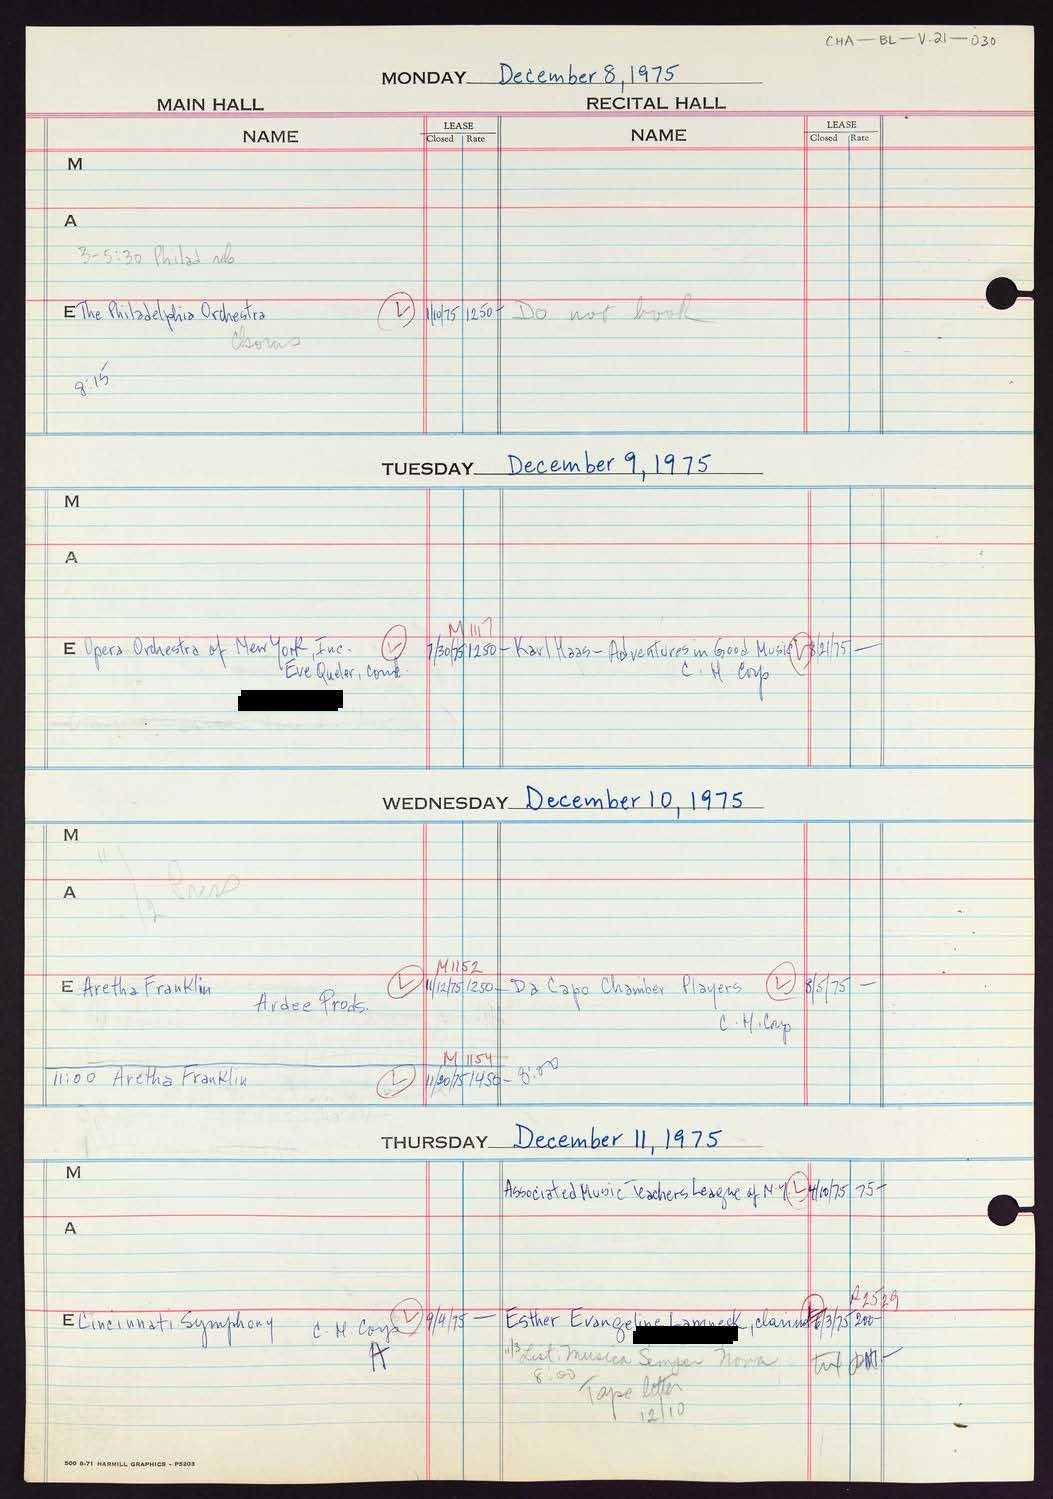 CHA-BL-V.21-030
MONDAY December 8, 1975
MAIN HALL RECITAL HALL
NAME LEASE Closed Rate NAME LEASE Closed Rate
M
A
3-5:30 Philad reh
E The Philadelphia Orchestra L 1/10/75 1250- Do not book
Chorus
8:15
TUESDAY December 9, 1975
M
A
M 1117
E Opera Orchestra of New York, Inc. L 7/30/75 1250- Karl Haas - Adventures in Good Music L 8/21/75 -
Eve Queler, cond. C. H Corp
WEDNESDAY December 10, 1975
M
A
M 1152
E Aretha Franklin L 11/12/75 1250- Da Capo Chamber Players L 8/5/75 -
Ardee Prods. C. H. Corp
M 1154
11:00 Aretha Franklin L 11/20/75 1450- 8:00
THURSDAY December 11, 1975
M
Associated Music Teachers League of N.Y. L 4/10/75 75-
A
R2529
E Cincinnati Symphony C. H. Corp L 9/4/75 - Esther Evangeline Lamneck, clarinet 6/3/75 200-
A 11/3 List: Musica Semper Nova
8:00
Tape letter
12/10
500 8-71 HARMILL GRAPHICS - P5203